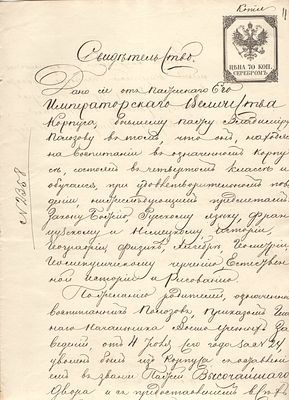 Копія
11
ЦѢНА 70 КОП.
СЕРЕБРОМЪ.
Свидѣтельство.
Дано сіе отъ Пажескаго Его
Императорскаго Величества
Корпуса, бывшему пажу Владиміру
въ томъ, что онъ, находясь
на воспитаніи въ означенномъ Корпу-
сѣ, состоялъ въ четвертомъ классѣ и
обучался, при удовлетворительномъ пове-
деніи, нижеслѣдующимъ предметамъ:
Закону Божію, Русскому языку, Фран-
цузскому и Нѣмецкому, Исторіи,
Географіи, Физикѣ, Алгебрѣ, Геометріи,
ученію, Естествен-
ной исторіи и Рисованію.
По желанію родителей, означенный
воспитанникъ приказомъ Глав-
наго Начальника Военно-Учебныхъ За-
веденій, отъ 4 сего года за № 24
уволенъ былъ изъ Корпуса съ оставлені-
емъ въ званіи Пажей Высочайшаго
Двора и съ предоставленіемъ